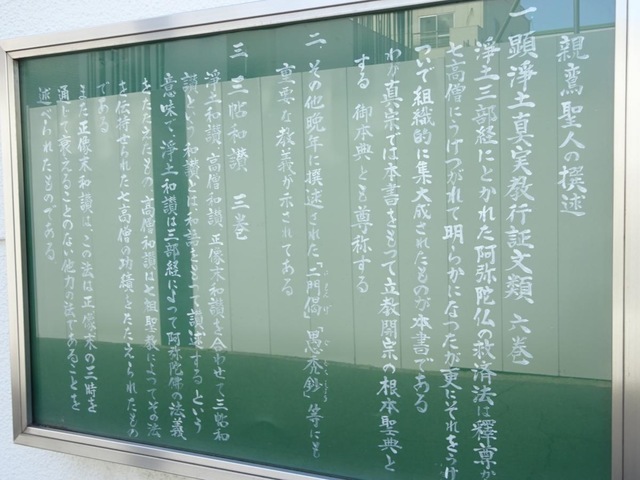 親鸞聖人の撰述
一 顕浄土真実教行証文類 六巻
浄土三部経にとかれた阿弥陀仏の救済法は釋尊か
七高僧にうけつがれて明らかになつたが更にそれをうけ
ついで組織的に集大成されたものが本書である
わが真宗では本書をもつて立教開宗の根本聖典と
する 御本典とも尊称する
二 その他晩年に撰述された「二門偈」「愚禿鈔」等にも
重要な教義が示されてある
三 三帖和讃 三巻
浄土和讃 高僧和讃 正像末和讃を合わせて三帖和
讃という 和讃とは和語をもつて讃述するという
意味で 浄土和讃は三部経によつて阿弥陀佛の法義
をたたえたもの 高僧和讃は七祖聖教によつてその法
を伝持せられた七高僧の功績をたたえられたもの
である
また正像末和讃は、この法は正像末の三時を
通じて衰えることのない他力の法であることを
述べられたものである